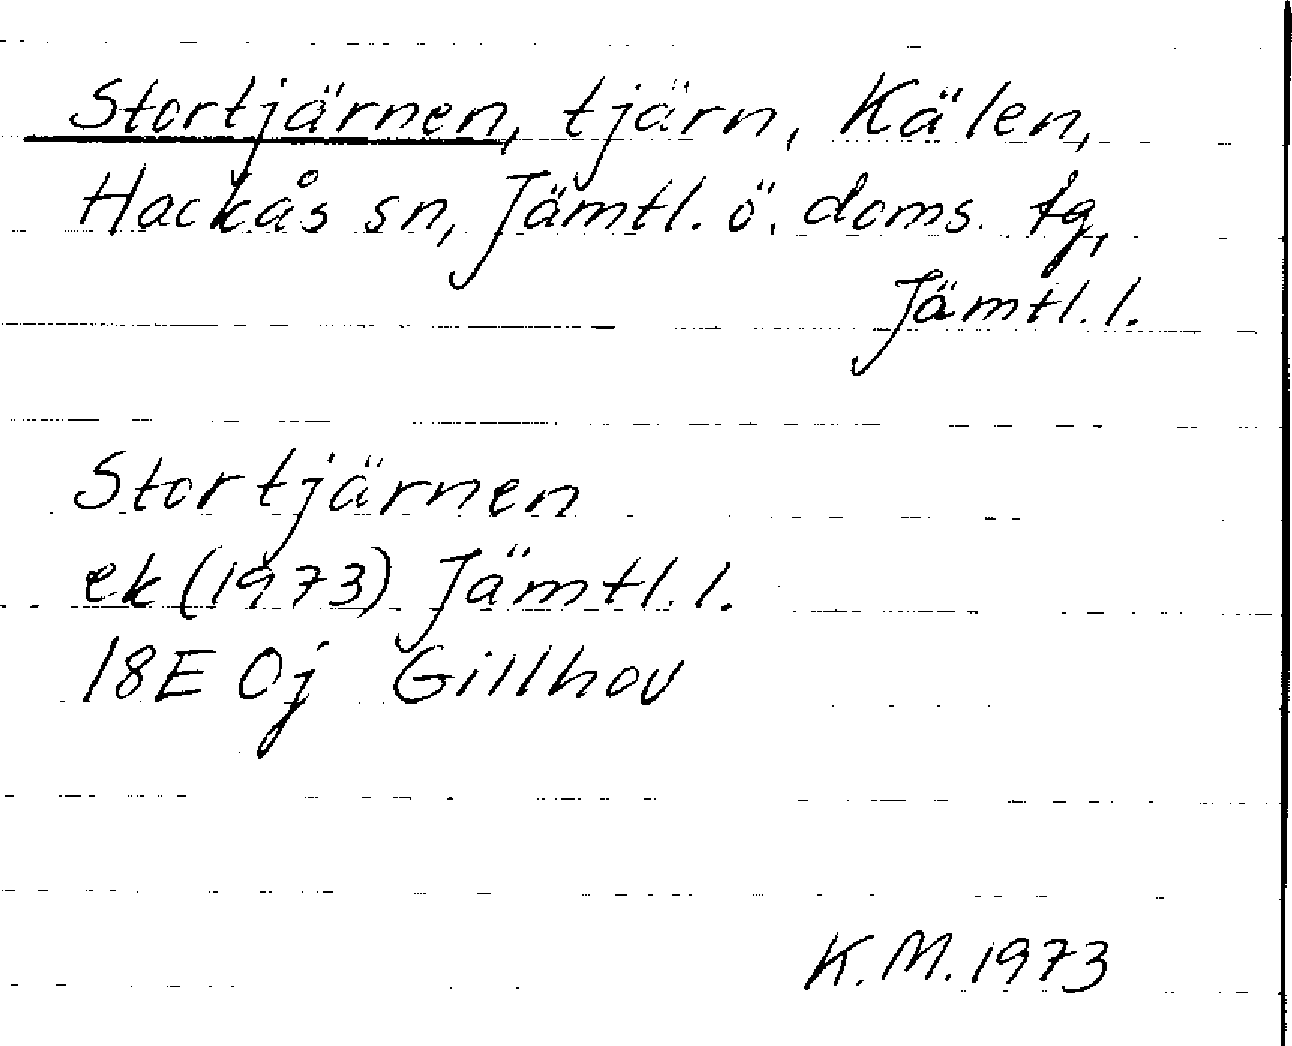 Stortjärnen, tjärn, Kälen,
Hackås sn, Jämtl. ö. doms. tg,
Jämtl. l.
Stortjärnen
ek (1973) Jämtl. l.
18E 0j Gillhov
K. M. 1973